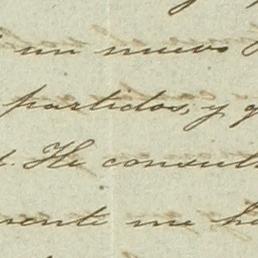 un nuevo
partidos, y q
He consult
mente me h